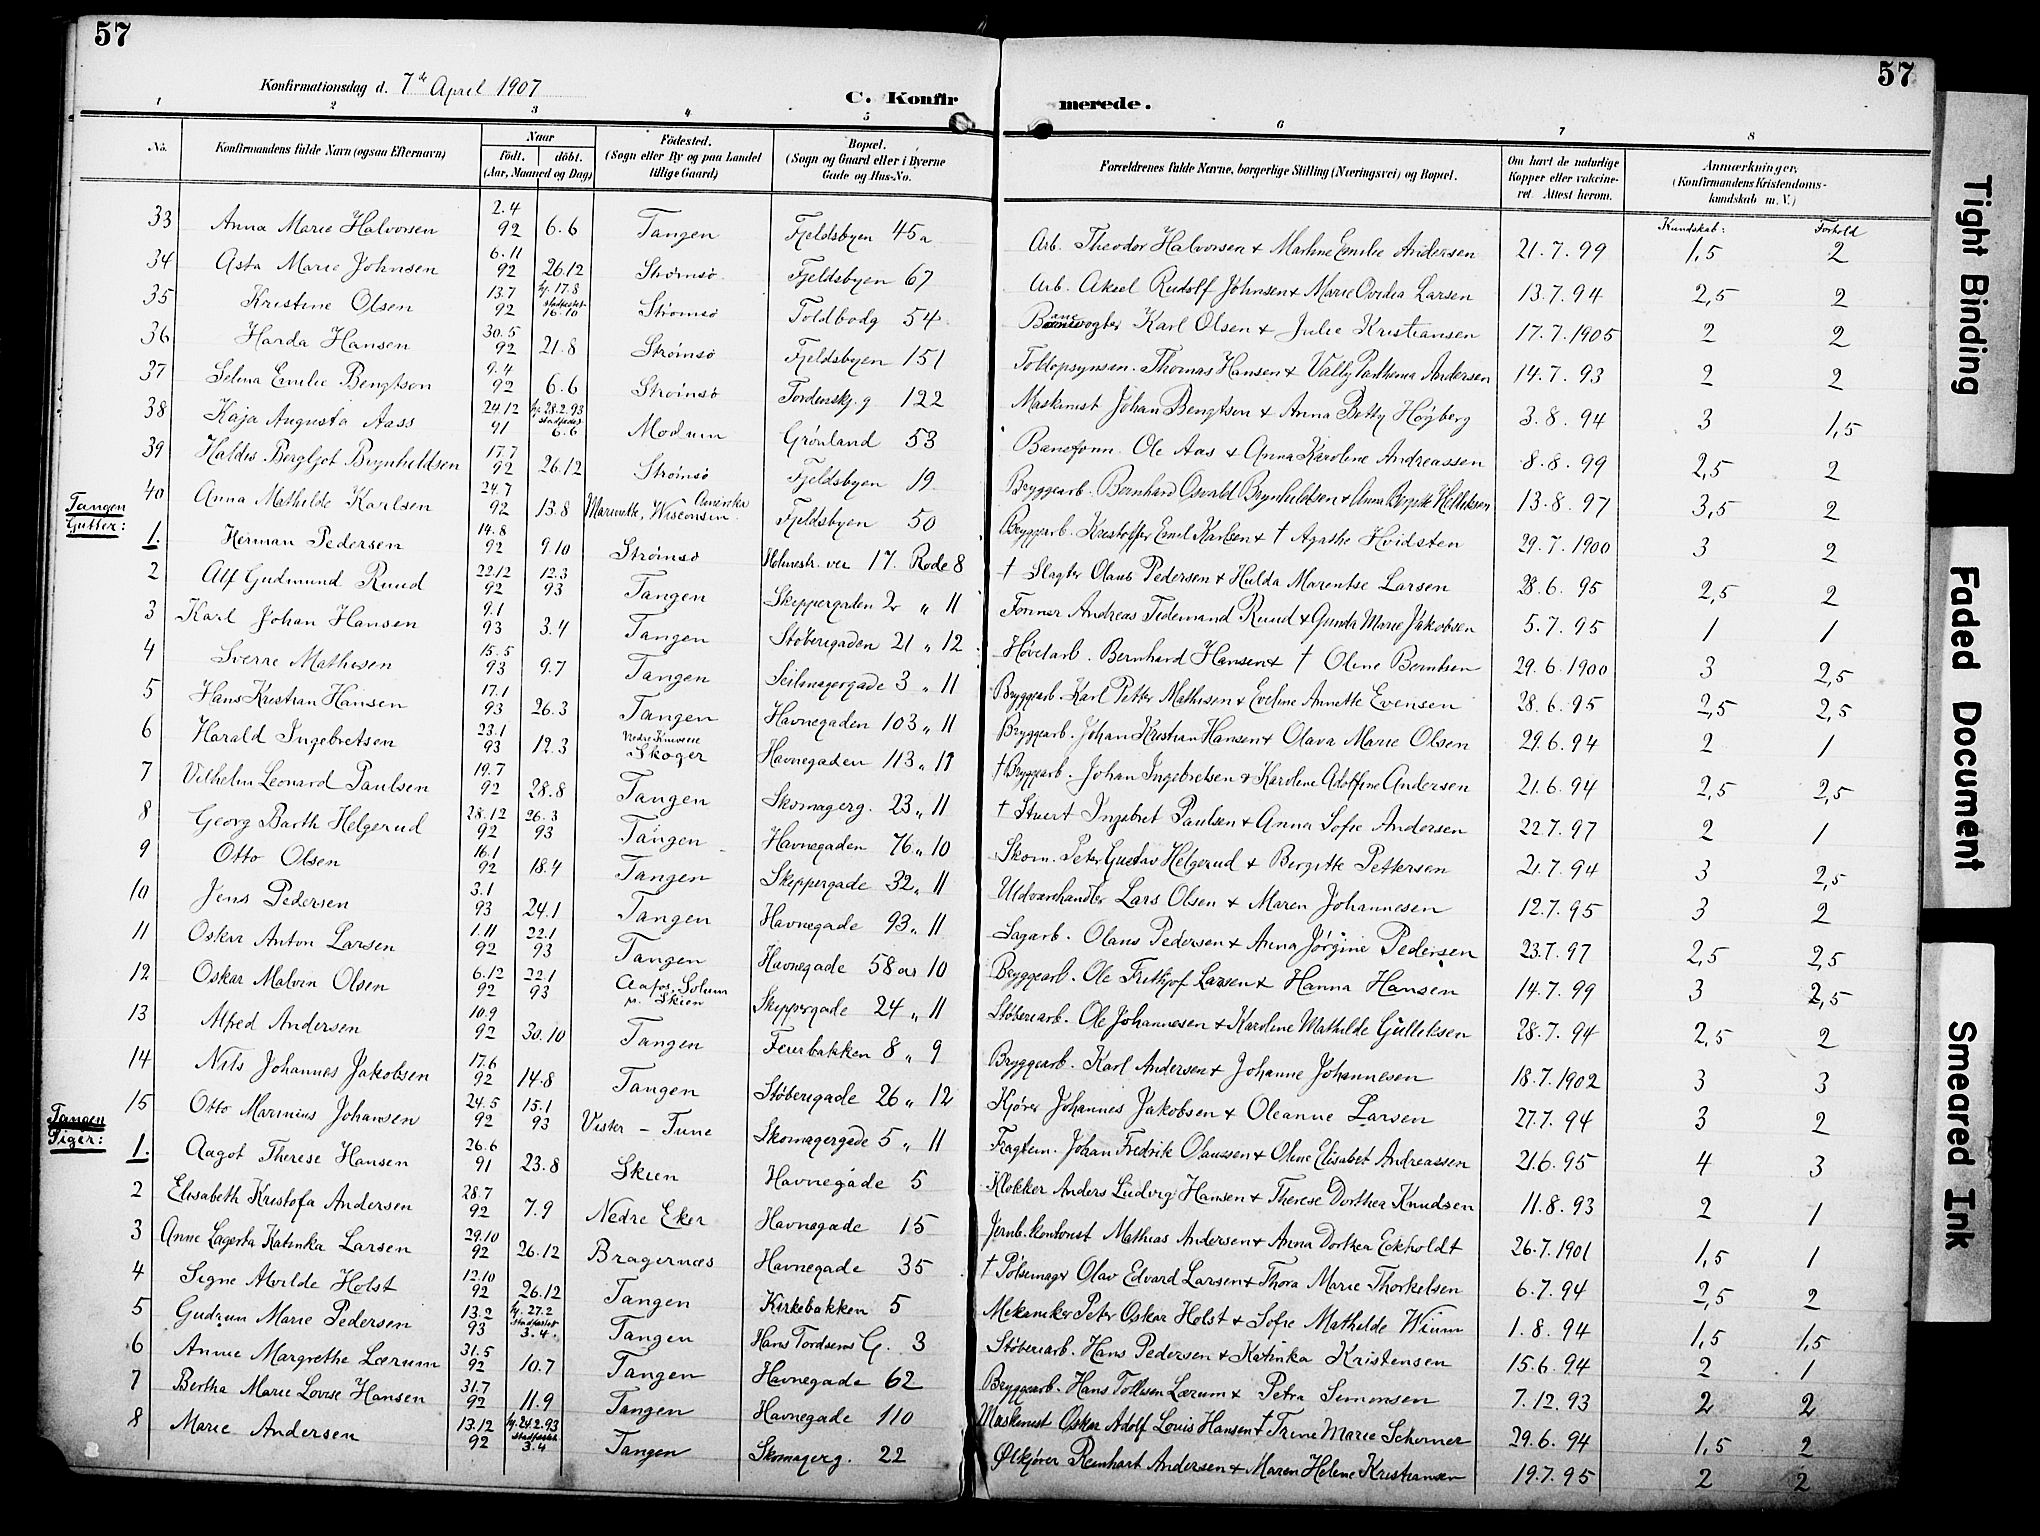 57
57
Konfirmationsdag d. 7de April 1907
C. Konfir merede.
1 2 3 4 5 6 7 8
No. Konfirmandens fulde Navn (ogsaa Efternavn) Naar födt. döbt. (Aar, Maaned og Dag) Födested. (Sogn eller By og paa Landet tillige Gaard) Bopæl. (Sogn og Gaard eller i Byerne Gade og Hus-No. Forældrenes fulde Navne, borgerlige Stilling (Næringsvei) og Bopæl. Om havt de naturlige Kopper eller vakcineret. Attest herom. Anmærkninger, (Konfirmandens Kristendomskundskab m. V.)
Kundskab: Forhold
33 Anna Marie Halvorsen 2.4 92 6.6 Tangen Fjeldsbyen 45a Arb. Theodor Halvorsen & Marhne Emilie Andersen 21.7.99 1,5 2
34 Asta Marie Johnsen 6.11 92 26.12 Strømsø Fjeldsbyen 67 Arb. Aksel Rudolf Johnsen & Marie Ovidia Larsen 13.7.94 2,5 2
35 Kristine Olsen 13.7 92 hj. 17.8 stadfestet 16.10 Strømsø Toldbodg 54 Banevogter Karl Olsen & Julie Kristiansen 17.7.1905 2 2
36 Harda Hansen 30.5 92 21.8 Strømsø Fjeldsbyen 151 Toldopsynsm. Thomas Hansen & Vally Parthema Andersen 14.7.93 2 2
37 Selma Emilie Bengtson 9.4 92 6.6 Strømsø Tordenskj. g. 122 Maskinist Johan Bengtsen & Anna Betty Høgberg 3.8.94 3 1,5
38 Kaja Augusta Aass 24.12 91 hj. 28.2.93 stadfestet 6.6 Modum Grönland 53 Baneform. Ole Aas & Anna Karoline Andreassen 8.8.99 2,5 2
39 Haldis Bergljot Brynhildsen 17.7 92 26.12 Strømsø Fjeldsbyen 19 Bryggearb. Bernhard Osvald Brynhildsen & Anna Birgitte Helliksen 13.8.97 3,5 2
40 Anna Mathilde Karlsen 24.7 92 13.8 Marinette, Wisconsin Amerika Fjeldsbyen 50 Bryggearb. Kristoffer Emil Karlsen & † Agathe Hvidsten 29.7.1900 3 2
Tangen
Gutter:
1. Herman Pedersen 14.8 92 9.10 Strømsø Holmestr. vei 17. Rode 8 † Slagter Olaus Pedersen & Hulda Marentse Larsen 28.6.95 2,5 2
2 Alf Gudmund Ruud 22.12 92 12.3 93 Tangen Skippergaden 2 " 11 Former Andreas Tidemand Ruud & Gunda Marie Jakobsen 5.7.95 1 1
3 Karl Johan Hansen 9.1 93 3.4 Tangen Støberigaden 21 " 12 Høvelarb. Bernhard Hansen & † Oline Berntsen 29.6.1900 3 2,5
4 Sverre Mathisen 15.5 93 9.7 Tangen Seilmagergade 3 " 11 Bryggearb. Karl Petter Mathisen & Eveline Annette Evensen 28.6.95 2,5 2,5
5 Hans Kristian Hansen 17.1 93 26.3 Tangen Havnegaden 103 " 11 Bryggearb. Johan Kristian Hansen & Olava Marie Olsen 29.6.94 2 1
6 Harald Ingebretsen 23.1 93 12.3 Nedre Skoger Havnegaden 113 " 11 † Bryggearb. Johan Ingebretsen & Karoline Adolfine Andersen 21.6.94 2,5 2,5
7 Vilhelm Leonard Paulsen 19.7 92 28.8 Tangen Skomagerg. 23 " 11 † Stuert Ingebret Paulsen & Anna Sofie Andersen 22.7.97 2 1
8 Georg Barth Helgerud 28.12 92 26.3 93 Tangen Havnegaden 76 " 10 Skom. Peter Gustav Helgerud & Birgitte Pettersen 21.7.94 3 2,5
9 Otto Olsen 16.1 92 18.4 Tangen Skippergade 32 " 11 Uldvarehandler Lars Olsen & Maren Johannesen 12.7.95 3 2
10 Jens Pedersen 3.1 93 24.1 Tangen Havnegade 93 " 11 Sagarb. Olaus Pedersen & Anna Jørgine Pedersen 23.7.97 2,5 2,5
11 Oskar Anton Larsen 1.11 92 22.1 93 Tangen Havnegade 58a " 10 Bryggearb. Ole Frithjof Larsen & Hanna Hansen 14.7.99 3 2,5
12 Oskar Malvin Olsen 6.12 92 22.1 93 Aafos, Solum p. Skien Skippergade 24 " 11 Støberiarb. Ole Johannesen & Karoline Mathilde Gulliksen 28.7.94 2,5 2
13 Alfred Andersen 10.9 92 30.10 Tangen Feierbakken 8 " 9 Bryggearb. Karl Andersen & Johanne Johannesen 18.7.1902 3 3
14 Nils Johannes Jakobsen 17.6 92 14.8 Tangen Støberigade 26 " 12 Kjører Johannes Jakobsen & Oleanne Larsen 27.7.94 3 2
15 Otto Marinius Johansen 24.5 92 15.1 93 Vister - Tune Skomagergade 5 " 11 Fragtem. Johan Fredrik Olaussen & Oline Elisabet Andreassen 21.6.95 4 3
Tangen
Piger:
1. Aagot Therese Hansen 26.6 91 23.8 Skien Havnegade 5 Klokker Anders Ludvig Hansen & Therese Dorthea Knudsen 11.8.93 2 1
2 Elisabeth Kristofa Andersen 28.7 92 7.9 Nedre Eker Havnegade 15 Jernb. kontorist Mathias Andersen & Anna Dorthea Eckholdt 26.7.1901 1,5 1
3 Anne Lagerta Katinka Larsen 29.10 92 26.12 Bragernæs Havnegade 35 † Pølsemager Olav Edvard Larsen & Thora Marie Thorkelsen 6.7.94 2,5 2
4 Signe Alvilde Holst 12.10 92 26.12 Tangen Kirkebakken 5 Mekaniker Peter Oskar Holst & Sofie Mathilde Wium 1.8.94 1,5 1,5
5 Gudrun Marie Pedersen 13.2 93 hj. 27.2 stadfestet 3.4. Tangen Hans Tordsens G. 3 Støberiarb. Hans Pedersen & Katinka Kristensen 15.6.94 2 1
6 Annie Margrethe Lærum 31.5 92 10.7 Tangen Havnegade 62 Bryggearb. Hans Tollisen Lærum & Petra Simonsen 7.12.93 2 2
7 Bertha Marie Lovise Hansen 31.7 92 11.9 Tangen Havnegade 110 Maskinist Oskar Adolf Louis Hansen & † Trine Marie Scherner 29.6.94 1,5 2
8 Marie Andersen 13.12 92 hj. 24.2.93 stadfestet 3.4 Tangen Skomagerg. 22 Ølkjører Reinhart Andersen & Maren Helene Kristiansen 19.7.95 2 2
Tight Binding
Faded Document
Smeared Ink